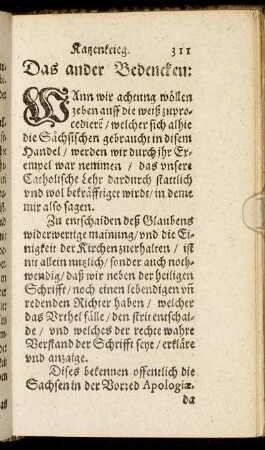 Katzenkrieg. 311
Das ander Bedencken:
WAnn wir achtung wöllen
geben auff die weiß zupro-
cediern / welcher sich alhie
die Sächsischen gebraucht in disem
Handel / werden wir durch ihr Ex-
empel war nemmen / das vnsere
Catholische Lehr dardurch stattlich
vnd wol bekräfftiget wirdt / in deme
mir also sagen.
Zu entschaiden deß Glaubens
widerwertige mainung / vnd die Ei-
nigkeit der Kirchen zuerhalten / ist
nit allein nutzlich / sonder auch noth-
wendig / daß wir neben der heiligen
Schrifft / noch einen lebendigen vñ
redenden Richter haben / welcher
das Vrthel fälle / den strit entschai-
de / vnd welches der rechte wahre
Verstand der Schrifft seye / erkläre
vnd anzaige.
Dises bekennen offentlich die
Sachsen in der Vorred Apologiæ.
da